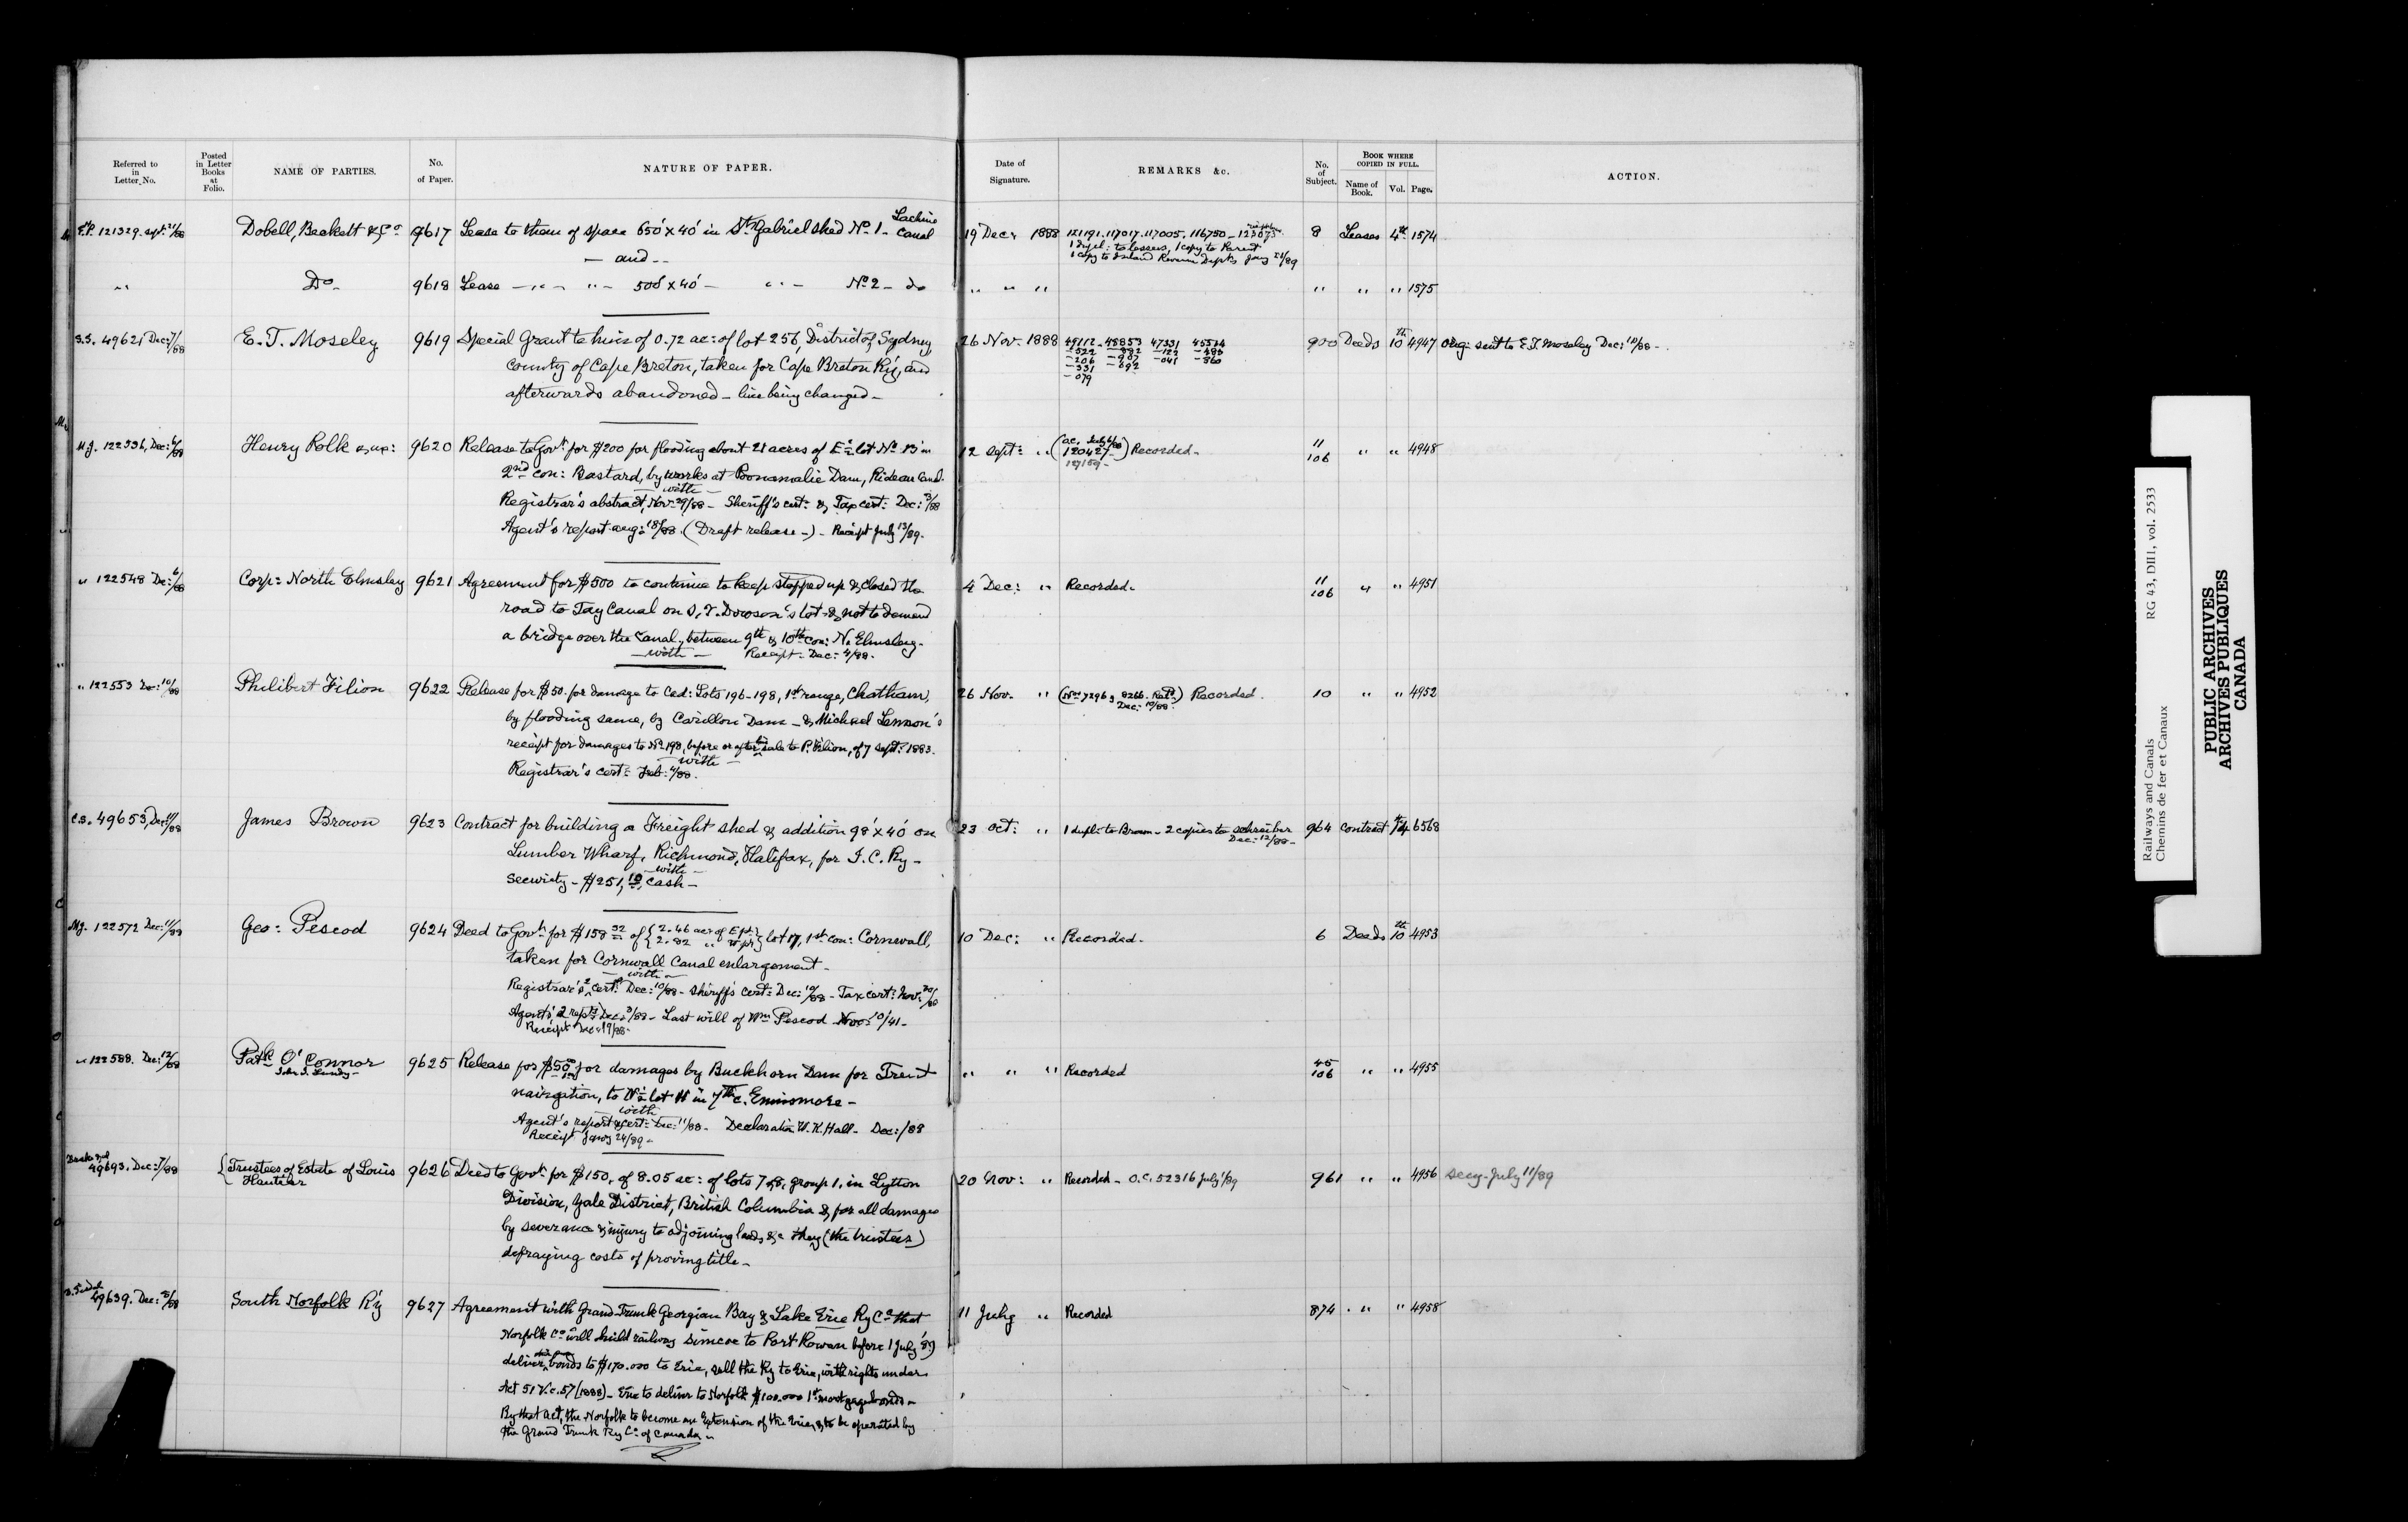 Referred to in Letter No. Posted in Letter Books at Folio. NAME OF PARTIES. No. of Paper. NATURE OF PAPER. Date of Signature. REMARKS &c. No. of Subject. BOOK WHERE COPIED IN FULL. Name of Book. Vol. Page. ACTION.
Dobell, Beckett & Co 9617 Lease to them of space 650' x 40' in St Gabriel shed No 1 - Lachine Canal 19 Dec. 1888 121191. 117017. 117005. 116750 8 Leases 4th 1574
— and —
1 dupl: to lessees, 1 copy to Parent
1 copy to Inland Revenue Dept
Do 9618 Lease 500' x 40' No 2 - do " " " " " " 1575
S.S. 49621 Dec: 7/88 E. T. Moseley 9619 Special Grant to him of 0.72 ac: of lot 256, District of Sydney, 26 Nov. 1888 900 Deeds 10th 4947 Orig: sent to E. T. Moseley Dec: 10/88 -
county of Cape Breton, taken for Cape Breton Ry, and
afterwards abandoned - line being changed -
Mj. 122536, Dec: 6/88 Henry Polk & ux: 9620 Release to Govt for $200 for flooding about 21 acres of E ½ lot No 13 in 12 Sept: " Recorded - 11 106 " " 4948
2nd con: Bastard, by works at Poonamalie Dam, Rideau Canal
— with —
Registrar's abstract, Nov 29/88 - Sheriff's cert: & Tax cert: Dec: 3/88
Agent's report Aug: 18/88. (Draft release -) - Receipt July 13/89.
" 122548 Dec: 6/88 Corp: North Elmsley 9621 Agreement for $500 to continue to keep stopped up & closed the 4 Dec: " Recorded - 11 106 " " 4951
road to Tay Canal on S. T. Dowson's lot & not to demand
a bridge over the canal, between 9th & 10th con: N. Elmsley -
— with — Receipt - Dec: 4/88 -
" 122553 Dec: 10/88 Philibert Filion 9622 Release for $50. for damage to Cad: Lots 196-198, 1st range, Chatham, 26 Nov. " Recorded. 10 " " 4952
by flooding same, by Carillon Dam - & Michael Lennon's
receipt for damages to No 198, before or after sale to P. Filion, of 7 Sept: 1883.
— with —
Registrar's cert:
C.S. 49653, Dec: 11/88 James Brown 9623 Contract for building a Freight shed & addition 98' x 40' on 23 Oct: " 1 dupl: to Brown - 2 copies to Schreiber 964 Contract 14th 6568
Dec: 12/88 -
Lumber Wharf, Richmond, Halifax, for I. C. Ry -
— with —
Security - $251,10 cash -
Mj. 122572 Dec: 11/88 Geo: Pescod 9624 Deed to Govt for $158 32 of { 2.46 acs of E pt: 2.82 " W pt } lot 17, 1st con: Cornwall, 10 Dec: " Recorded - 6 Deeds 10th 4953
taken for Cornwall Canal enlargement -
— with —
Registrar's 2 certs Dec: 10/88 - Sheriff's cert: Dec: 10/88 - Tax cert: Nov: 30/88
Agents' 2 repts Dec: 3/88 - Last will of Wm Pescod Nov: 10/41 -
Receipt Dec: 19/88 -
" 122588. Dec: 12/88 Patk O'Connor 9625 Release for $50 for damages by Buckhorn Dam for Trent " " " Recorded 45 106 " " 4955
navigation, to W ½ lot 11 in 7th c. Ennismore -
— with —
Agent's report & cert: Dec: 11/88 - Declaration W. K. Hall - Dec: /88
Receipt Jany 24/89 -
49693. Dec: 7/88 { Trustees of Estate of Louis 9626 Deed to Govt for $150, of 8.05 ac: of lots 7 & 8, group 1, in Lytton 20 Nov: " Recorded - O.C. 52316 July 1/89 961 " " 4956 Secy - July 11/89
Hautier
Division, Yale District, British Columbia & for all damages
by severance & injury to adjoining lands, &c they (the trustees)
defraying costs of proving title -
49639. Dec: 8/88 South Norfolk Ry 9627 Agreement with Grand Trunk Georgian Bay & Lake Erie Ry Co that 11 July " Recorded 874 " " 4958
Norfolk Co will build railway Simcoe to Port Rowan before 1 July '89
deliver bonds to $170.000 to Erie, sell the Ry to Erie, with rights under
Act 51 V. c. 57 (1888) - Erie to deliver to Norfolk $100.000 1st mortgage bonds -
By that act, the Norfolk to become an extension of the Erie, & to be operated by
the Grand Trunk Ry Co of Canada -
Railways and Canals RG 43, DIII, vol. 2533
Chemins de fer et Canaux
PUBLIC ARCHIVES
ARCHIVES PUBLIQUES
CANADA